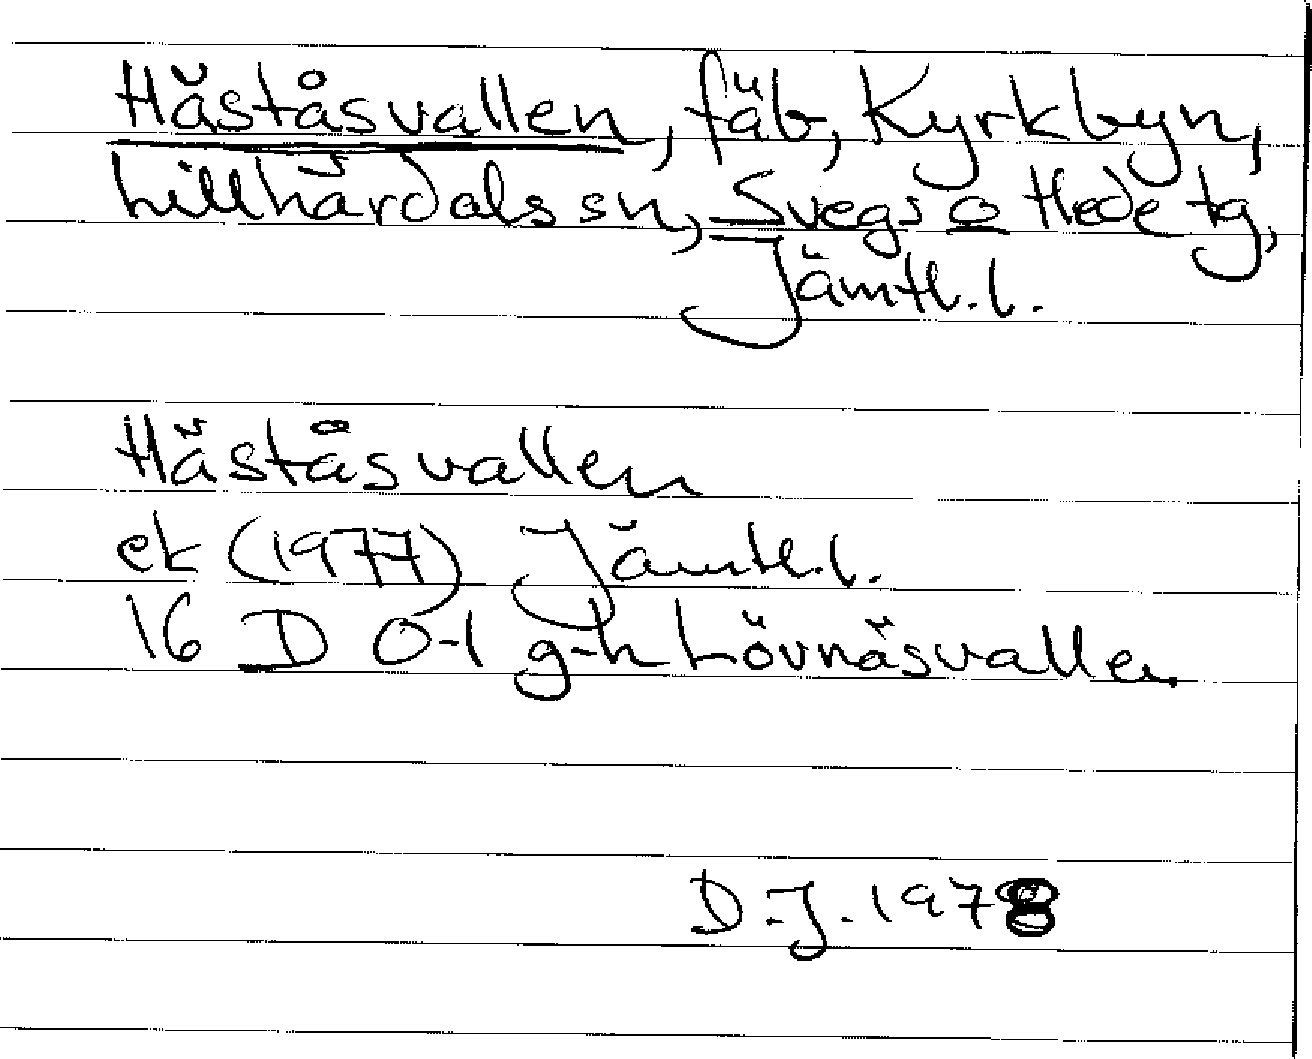 Häståsvallen, fäb, Kyrkbyn,
Lillhärdals sn, Svegs o Hede tg,
Jämtl. l.
Häståsvallen
ek (1977) Jämtl. l.
16 D 0-1 g-h Lövnäsvallen
D.J. 1978